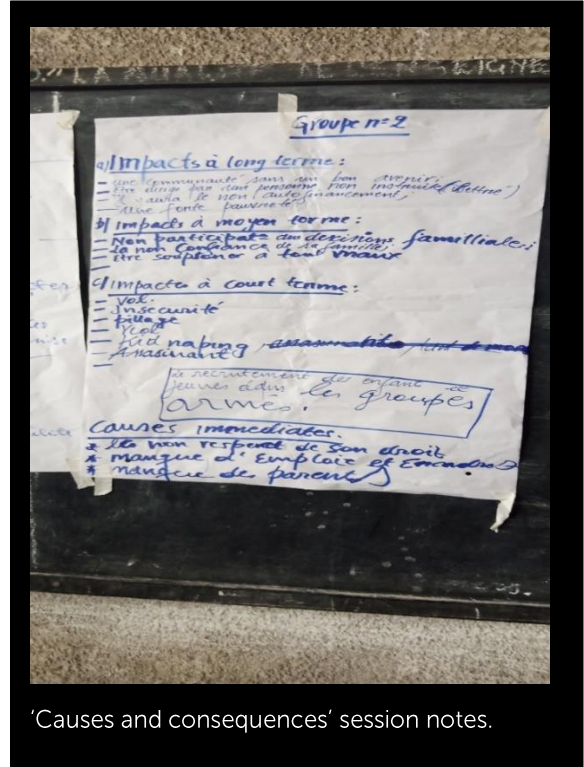 LA
Groupe n=2
a) Impacts à long terme :
- Une communauté sans un bon avenir,
- Etre dirigé par une personne non instruite (lettré)
- Il aura le non auto financement,
- Une forte pauvreté
b) Impacts à moyen terme :
- Non participate aux decisions familliales;
- la non Confiance de sa famille
- Etre soupsoner à tout vraux
c) Impactes à court terme :
- Vol.
- Insecurité
- pillage
- Viol
- Kid naping
- Assasinant
Le recrutement des enfant et
jeunes dans les groupes
armés.
Causes immediates.
* Le non respect de son droit
* manque d'Emploie et
* manque de parents
'Causes and consequences' session notes.